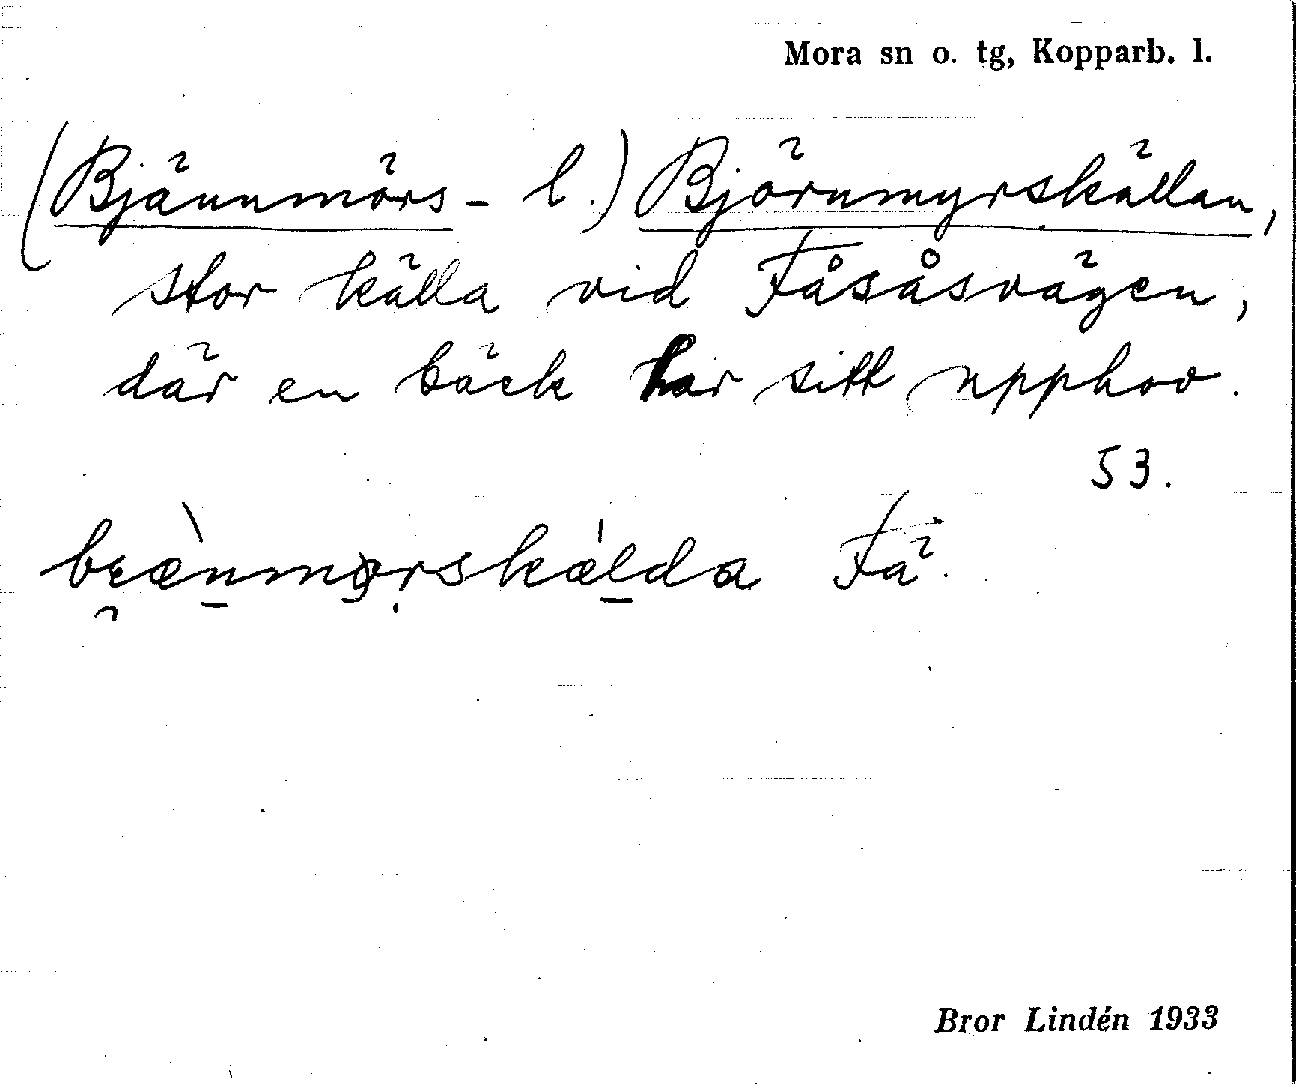 Mora sn o. tg, Kopparb. l.
(Bjännmörs- l.) Björnmyrskällan,
stor källa vid Fåsåsvägen,
där en bäck har sitt upphov.
53.
Fä.
Bror Lindén 1933